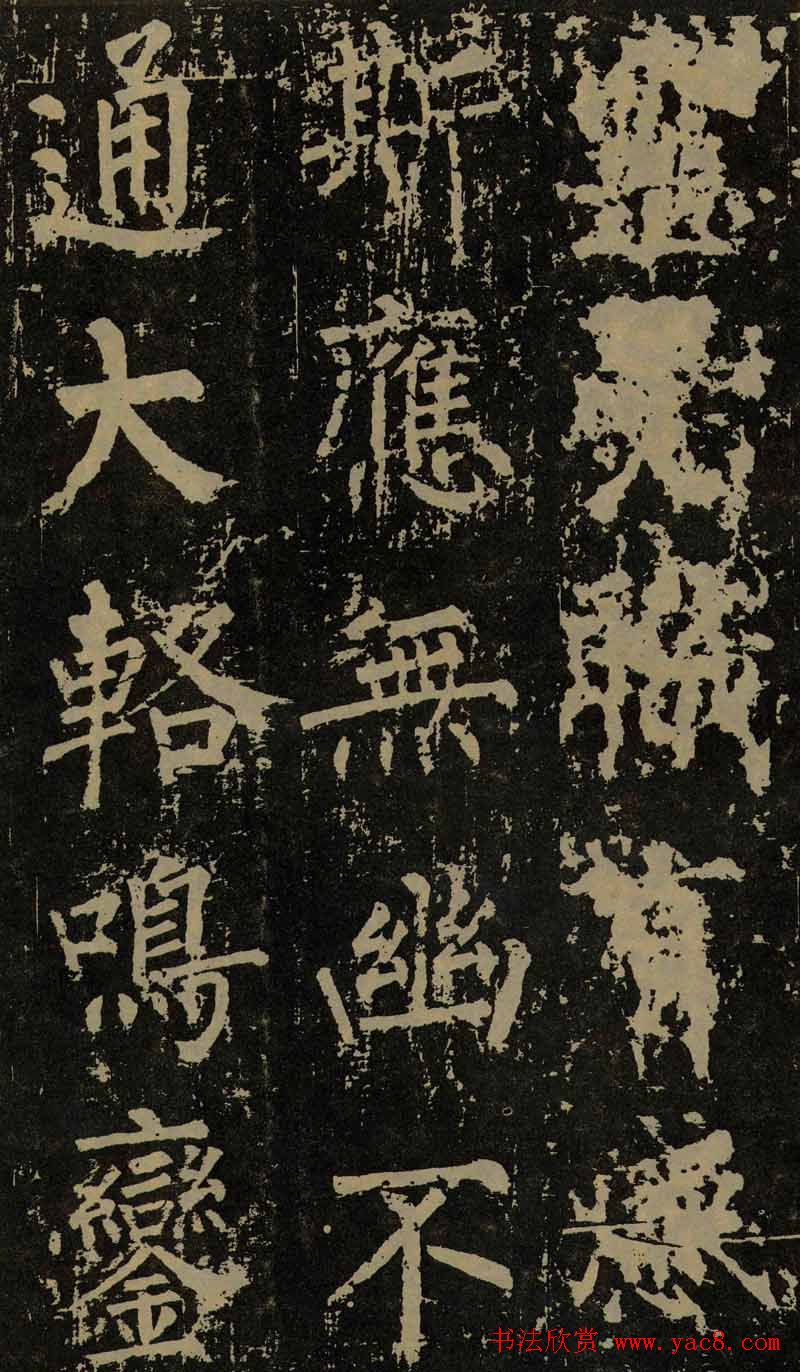 有感
斯應無幽不
通大輅鳴鑾
书法欣赏 www.yac8.com